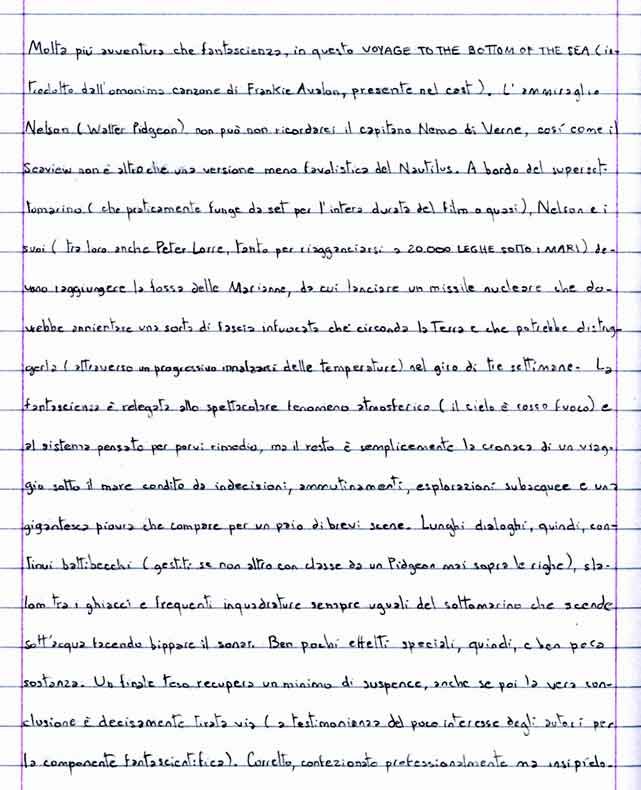 Molta più avventura che fantascienza, in questo VOYAGE TO THE BOTTOM OF THE SEA (in-
trodotto dall'omonima canzone di Frankie Avalon, presente nel cast). L'ammiraglio
Nelson (Walter Pidgeon) non può non ricordarci il capitano Nemo di Verne, così come il
Seaview non è altro che una versione meno favolistica del Nautilus. A bordo del supersot-
tomarino (che praticamente funge da set per l'intera durata del film o quasi), Nelson e i
suoi (tra loro anche Peter Lorre, tanto per riagganciarsi a 20.000 LEGHE SOTTO I MARI) de-
vono raggiungere la fossa delle Marianne, da cui lanciare un missile nucleare che do-
vrebbe annientare una sorta di fascia infuocata che circonda la Terra e che potrebbe distrug-
gerla (attraverso un progressivo innalzarsi delle temperature) nel giro di tre settimane. La
fantascienza è relegata allo spettacolare fenomeno atmosferico (il cielo è rosso fuoco) e
al sistema pensato per porvi rimedio, ma il resto è semplicemente la cronaca di un viag-
gio sotto il mare condito da indecisioni, ammutinamenti, esplorazioni subacquee e una
gigantesca piovra che compare per un paio di brevi scene. Lunghi dialoghi, quindi, con-
tinui battibecchi (gestiti se non altro con classe da un Pidgeon mai sopra le righe), sla-
lom tra i ghiacci e frequenti inquadrature sempre uguali del sottomarino che scende
sott'acqua facendo bippare il sonar. Ben pochi effetti speciali, quindi, e ben poca
sostanza. Un finale teso recupera un minimo di suspence, anche se poi la vera con-
clusione è decisamente tirata via (a testimonianza del poco interesse degli autori per
la componente fantascientifica). Corretto, confezionato professionalmente ma insipido.